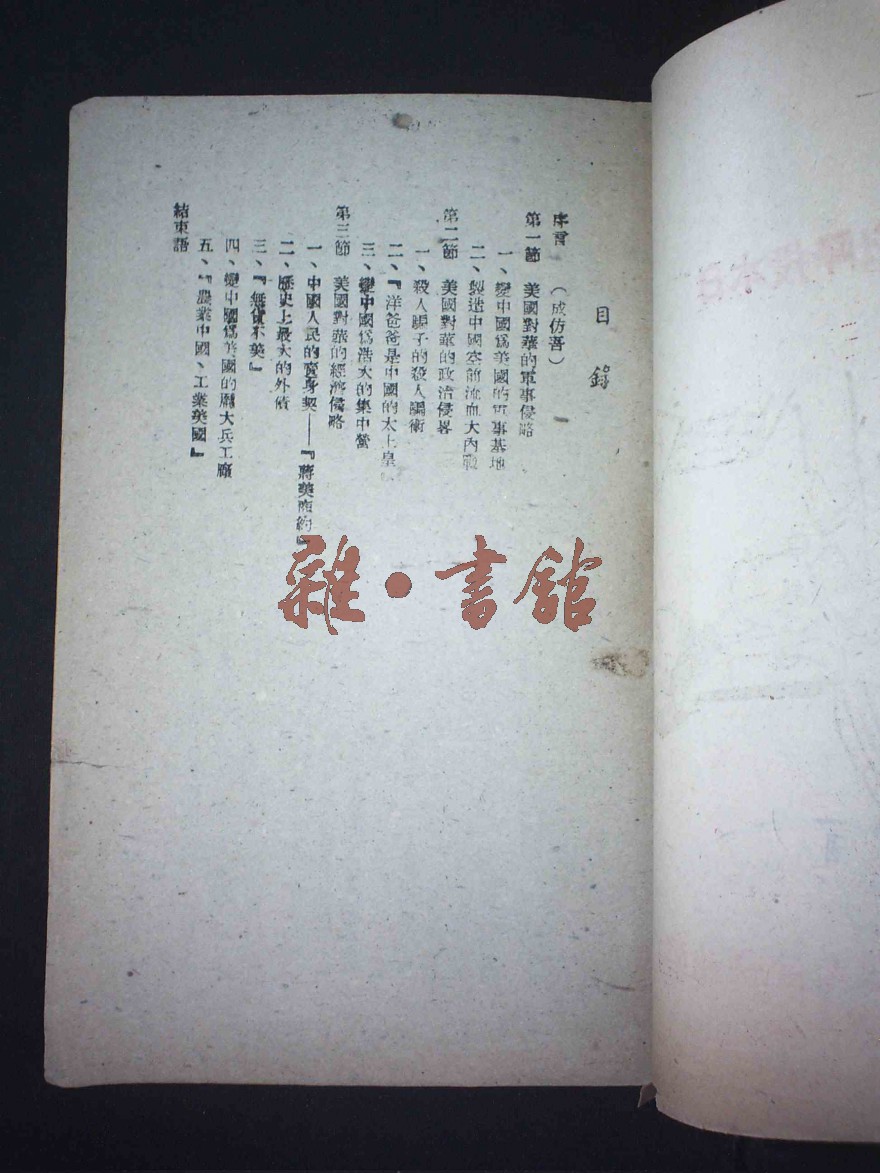 目錄
序言 （成仿吾）
第一節 美國對華的軍事侵略
一、變中國爲美國的軍事基地
二、製造中國空前流血大內戰
第二節 美國對華的政治侵畧
一、殺人騙子的殺人騙術
二、『洋爸爸是中國的太上皇』
三、變中國爲浩大的集中營
第三節 美國對華的經濟侵略
一、中國人民的賣身契——『蔣美商約』
二、歷史上最大的外債
三、『無貨不美』
四、變中國爲美國的龐大兵工廠
五、『農業中國、工業美國』
結束語
雜·書館